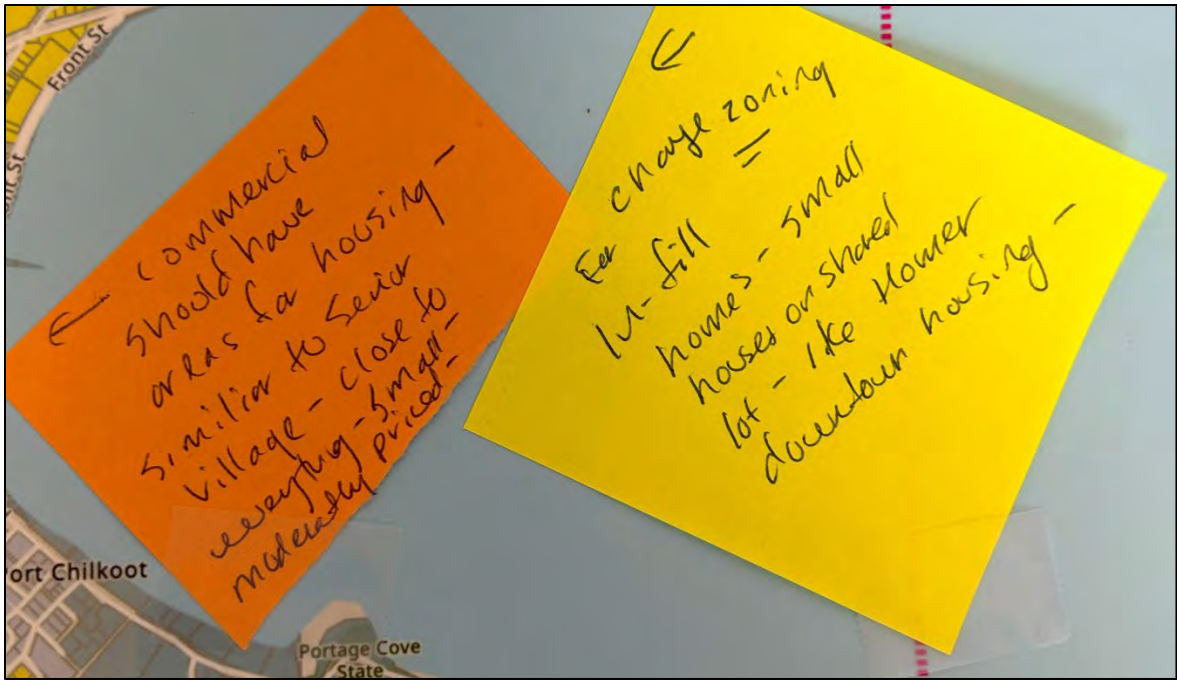 Front St
nt St
← commercial
should have
areas for housing –
similir to Senior
village – close to
everything – small –
moderatly priced –
←
change zoning
For
In-fill
homes – small
houses on shared
lot – like Homer
downtown housing –
ort Chilkoot
Portage Cove
State